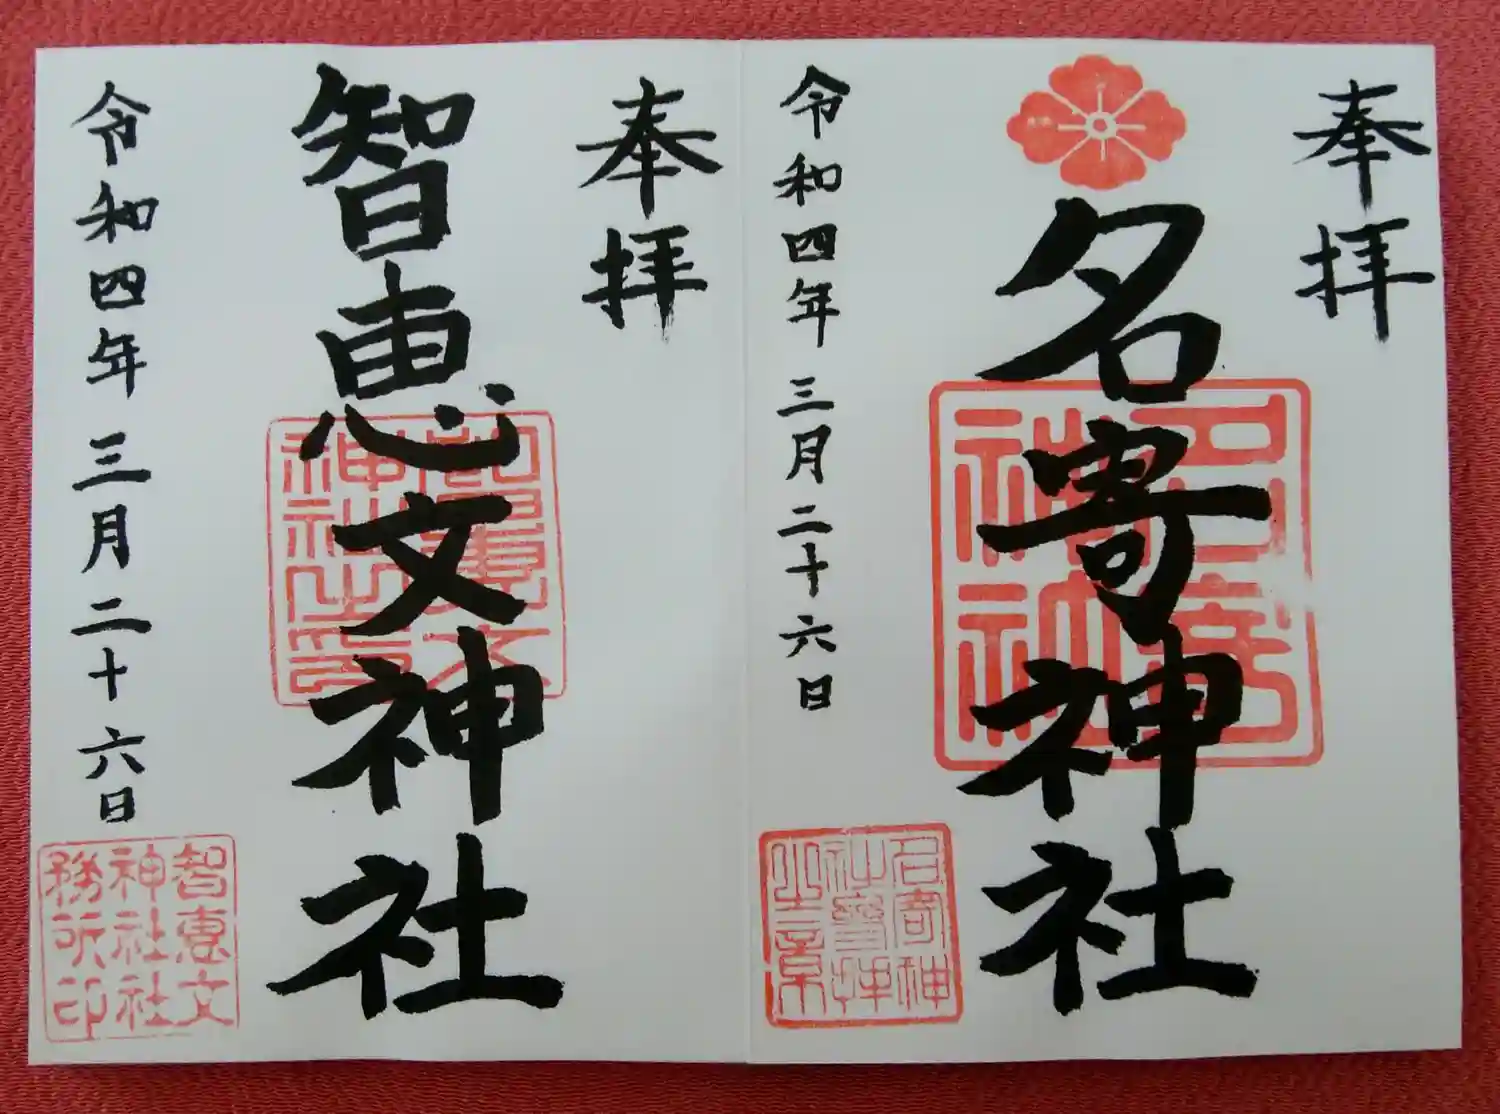 奉拝
名寄神社
令和四年三月二十六日
名寄神
社参拝
之章
名寄
神社
奉拝
智恵文神社
令和四年三月二十六日
智恵文
神社社
務所印
智恵文
神社之印